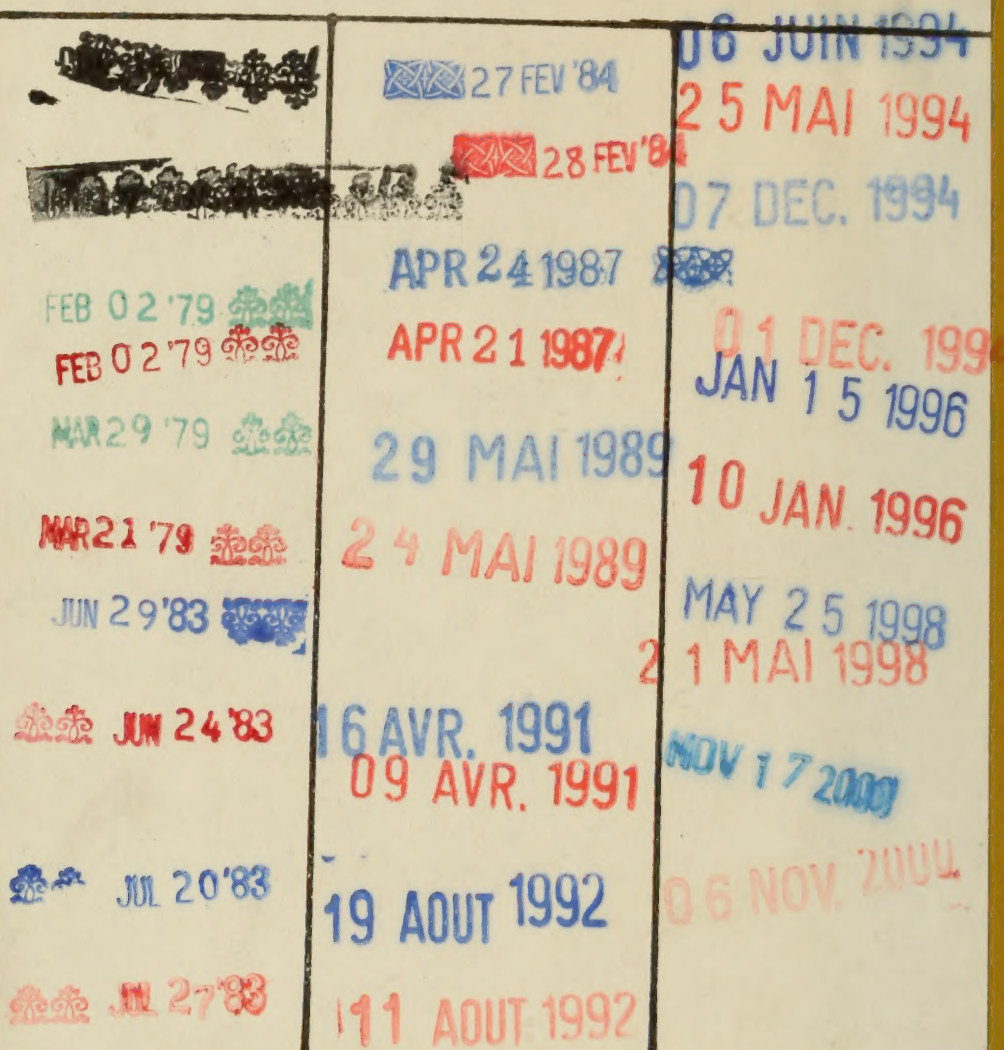 FEB 02 '79
FEB 02 '79
MAR 29 '79
MAR 21 '79
JUN 29 '83
JUN 24 '83
JUL 20 '83
JUL 27 '83
27 FEV '84
28 FEV '84
APR 24 1987
APR 21 1987
29 MAI 1989
24 MAI 1989
16 AVR. 1991
09 AVR. 1991
19 AOUT 1992
11 AOUT 1992
06 JUIN 1994
25 MAI 1994
07 DEC. 1994
01 DEC. 199
JAN 15 1996
10 JAN. 1996
MAY 25 1998
21 MAI 1998
NOV 17 2000
06 NOV. 2000